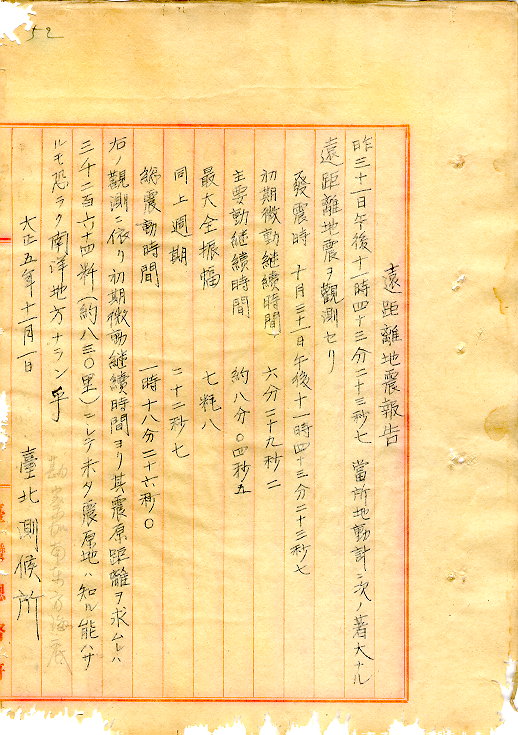 52
遠距離地震報告
昨三十一日午後十一時四十三分二十三秒七 當所地動計ニ次ノ著大ナル
遠距離地震ヲ觀測セリ
發震時 十月三十一日午後十一時四十三分二十三秒七
初期微動継續時間 六分二十九秒二
主要動継續時間 約八分〇四秒五
最大全振幅 七粍八
同上週期 二十二秒七
総震動時間 一時十八分二十六秒〇
右ノ觀測ニ依リ初期微動継續時間ヨリ其震原距離ヲ求ムレハ
三千二百六十四粁(約八三〇里)ニシテ未タ震原地ハ知ル能ハサ
ルモ恐ラク南洋地方ナラン乎
大正五年十一月一日 臺北測候所
臺灣總督府